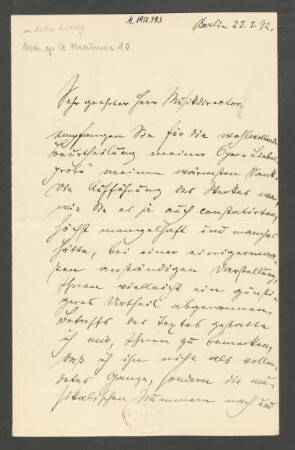 M. 1918.193
Berlin 23.3.92.
Mus. ep. A
Sehr geehrter Herr Musikdirector,
empfangen Sie für die wohlwollende
Beurtheilung meiner Oper „Liebes
probe" meinen wärmsten Dank.
Die Aufführung des Werkes war,
wie Sie es ja auch constatirten,
höchst mangelhaft und manches
hätte, bei einer einigermas-
sen anständigen Darstellung,
Ihnen vielleicht ein günsti-
geres Urtheil abgewonnen.
Betreffs des Textes gestatte
ich mir, Ihnen zu bemerken,
daß ich ihn nicht als vollen-
detes Ganze, sondern die mu-
sikalischen Nummern nach und